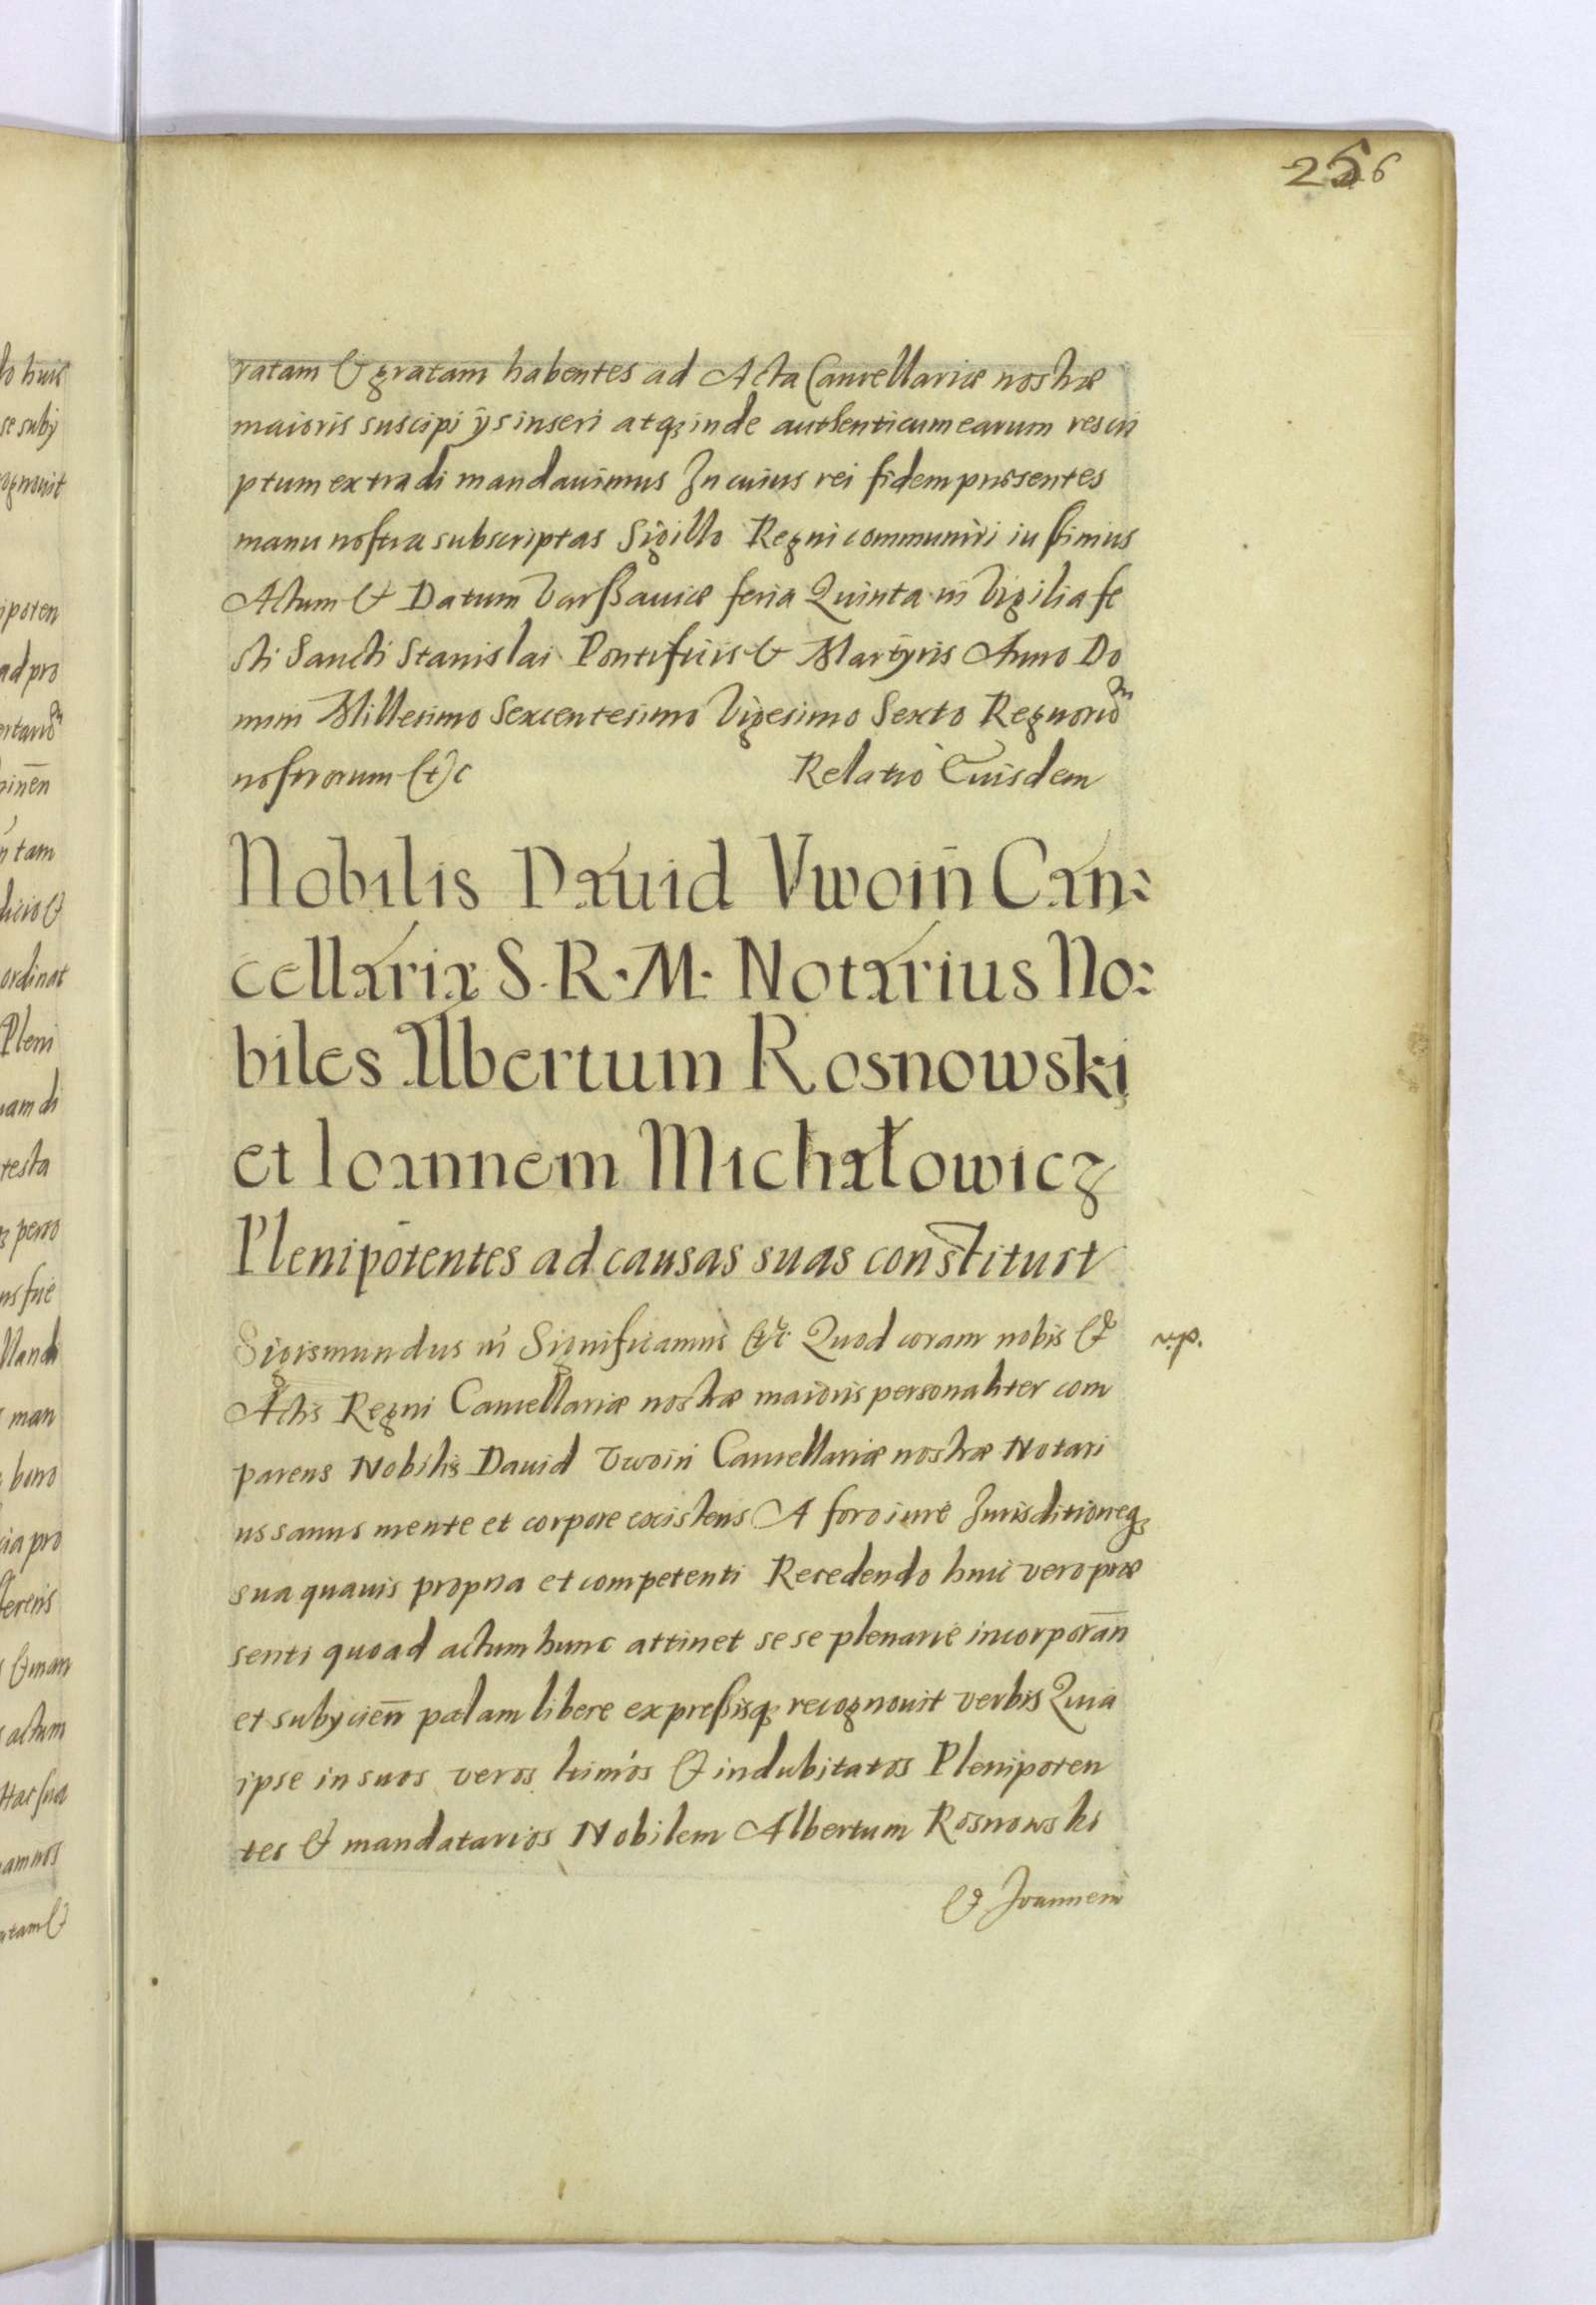 256
ratam & gratam habentes ad Acta Cancellariæ nostræ
maioris suscipi ijs inseri atq; inde authenticum earum rescri
ptum extradi mandauimus In cuius rei fidem præsentes
manu nostra subscriptas Sigillo Regni communiri iussimus
Actum & Datum Varssauiæ feria Quinta in Vigilia fe
sti Sancti Stanislai Pontificis & Martyris Anno Do
mini Millesimo Sexcentesimo Vigesimo Sexto Regnorū
nostrorum &c Relatio Eiusdem
Nobilis Dauid Vwoin̄ Can:
cellariæ S. R. M. Notarius No:
biles Albertum Rosnowski
et Ioannem Michałowicz
Plenipotentes ad causas suas constituit
Sigismundus III Significamus &c Quod coram nobis &
r.p.
Actis Regni Cancellariæ nostræ maioris personaliter com
parens Nobilis Dauid Vwoin Cancellariæ nostræ Notari
us sanus mente et corpore existens A foro iure Iurisditioneq;
sua quauis propria et competenti Recedendo huic vero præ
senti quoad actum hunc attinet sese plenarie incorporan̄
et subijcien̄ palam libere expressisq; recognouit verbis Quia
ipse in suos veros ltimos & indubitatos Plenipoten
tes & mandatarios Nobilem Albertum Rosnowski
& Joannem